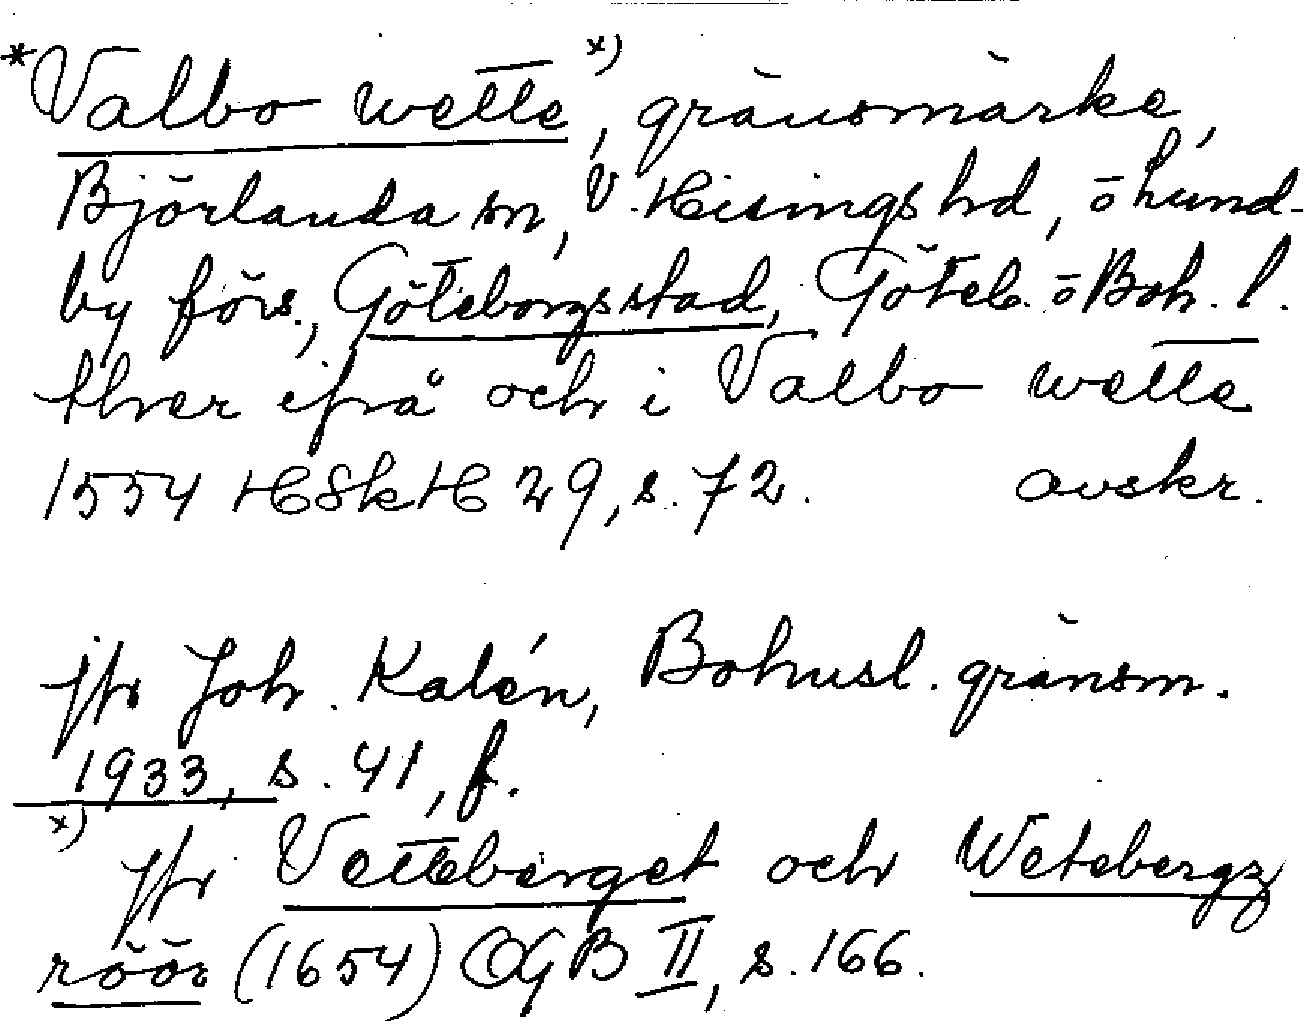 *Valbo wette x), gränsmärke,
Björlanda sn, V. Hisings hd, o Lund-
by förs., Göteborgs stad, Göteb. o Boh. l.
thver ifrå och i Valbo wette
1554 HSkH 29, s. 72. avskr.
jfr Joh. Kalén, Bohusl. gränsm.
1933, s. 41, f.
x) jfr Vetteberget och Wetebergz
röör (1654) OGB II, s. 166.